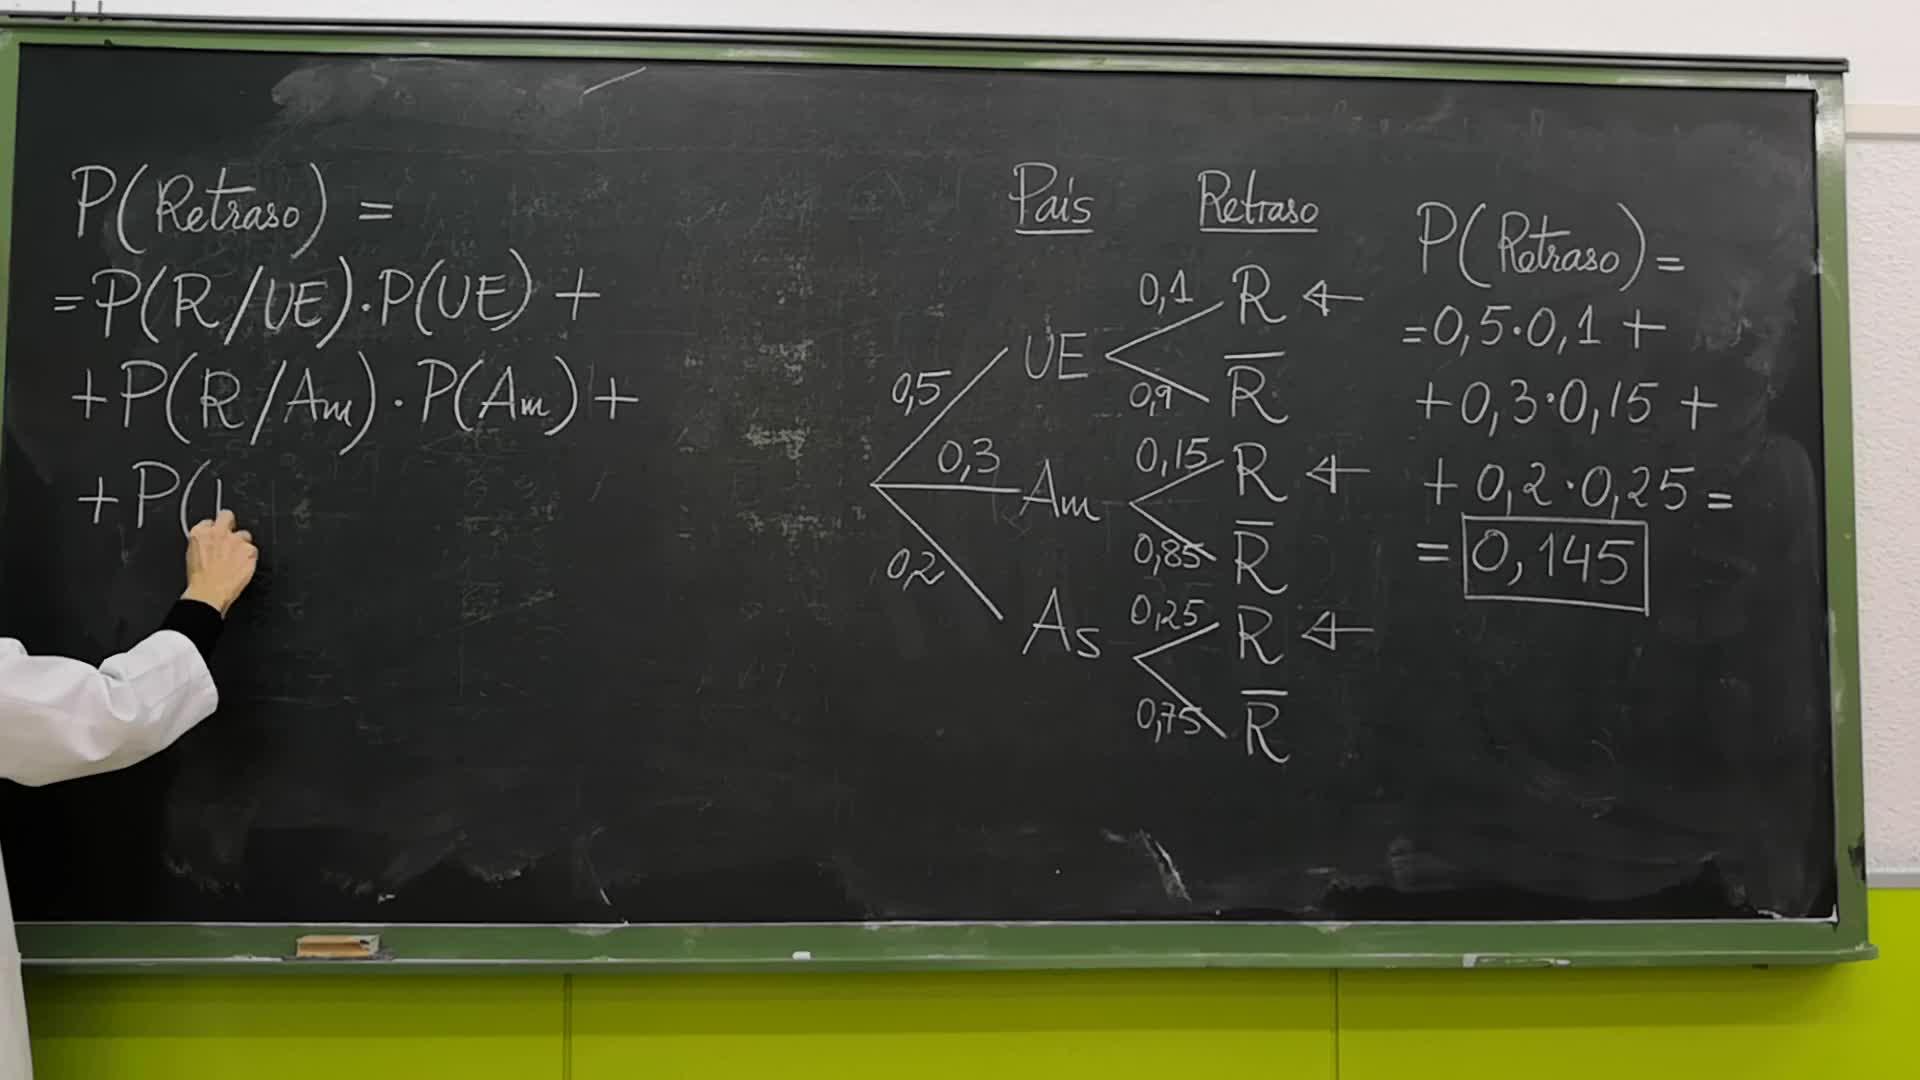 P(Retraso) =
= P(R/UE)·P(UE) +
+ P(R/Am)·P(Am) +
+ P(
País Retraso
0,5 UE 0,1 R
0,9 R̅
0,3 Am 0,15 R
0,85 R̅
0,2 As 0,25 R
0,75 R̅
P(Retraso) =
= 0,5·0,1 +
+ 0,3·0,15 +
+ 0,2·0,25 =
= 0,145